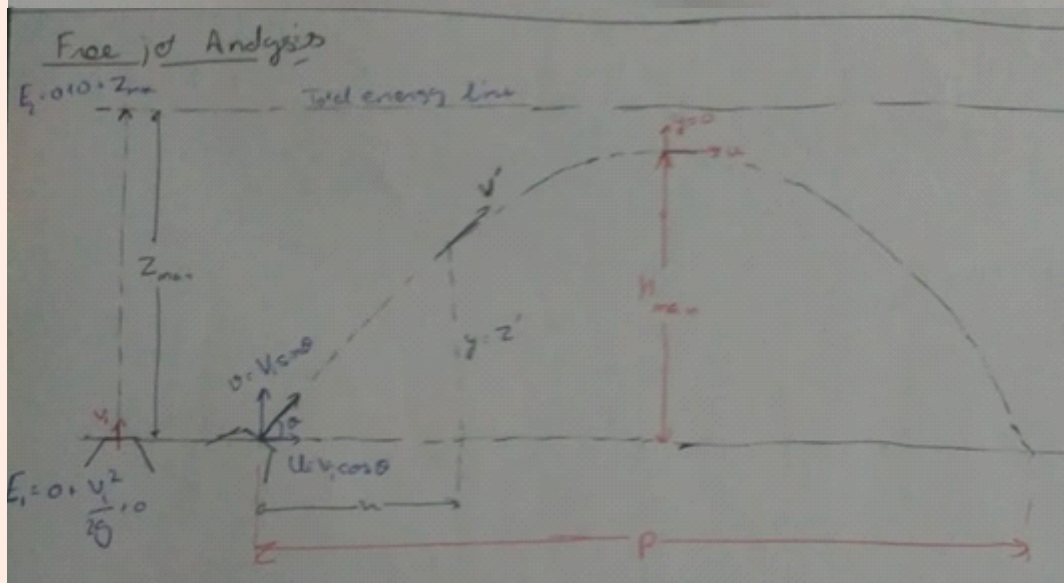 Free jet Analysis
E₂=0+0+Zmax
Total energy line
y=0
u
V'
Zmax
hmax
y=Z'
v=V₁sinθ
V₁
θ
U=V₁cosθ
E₁=0+V₁²/2g+0
x
P